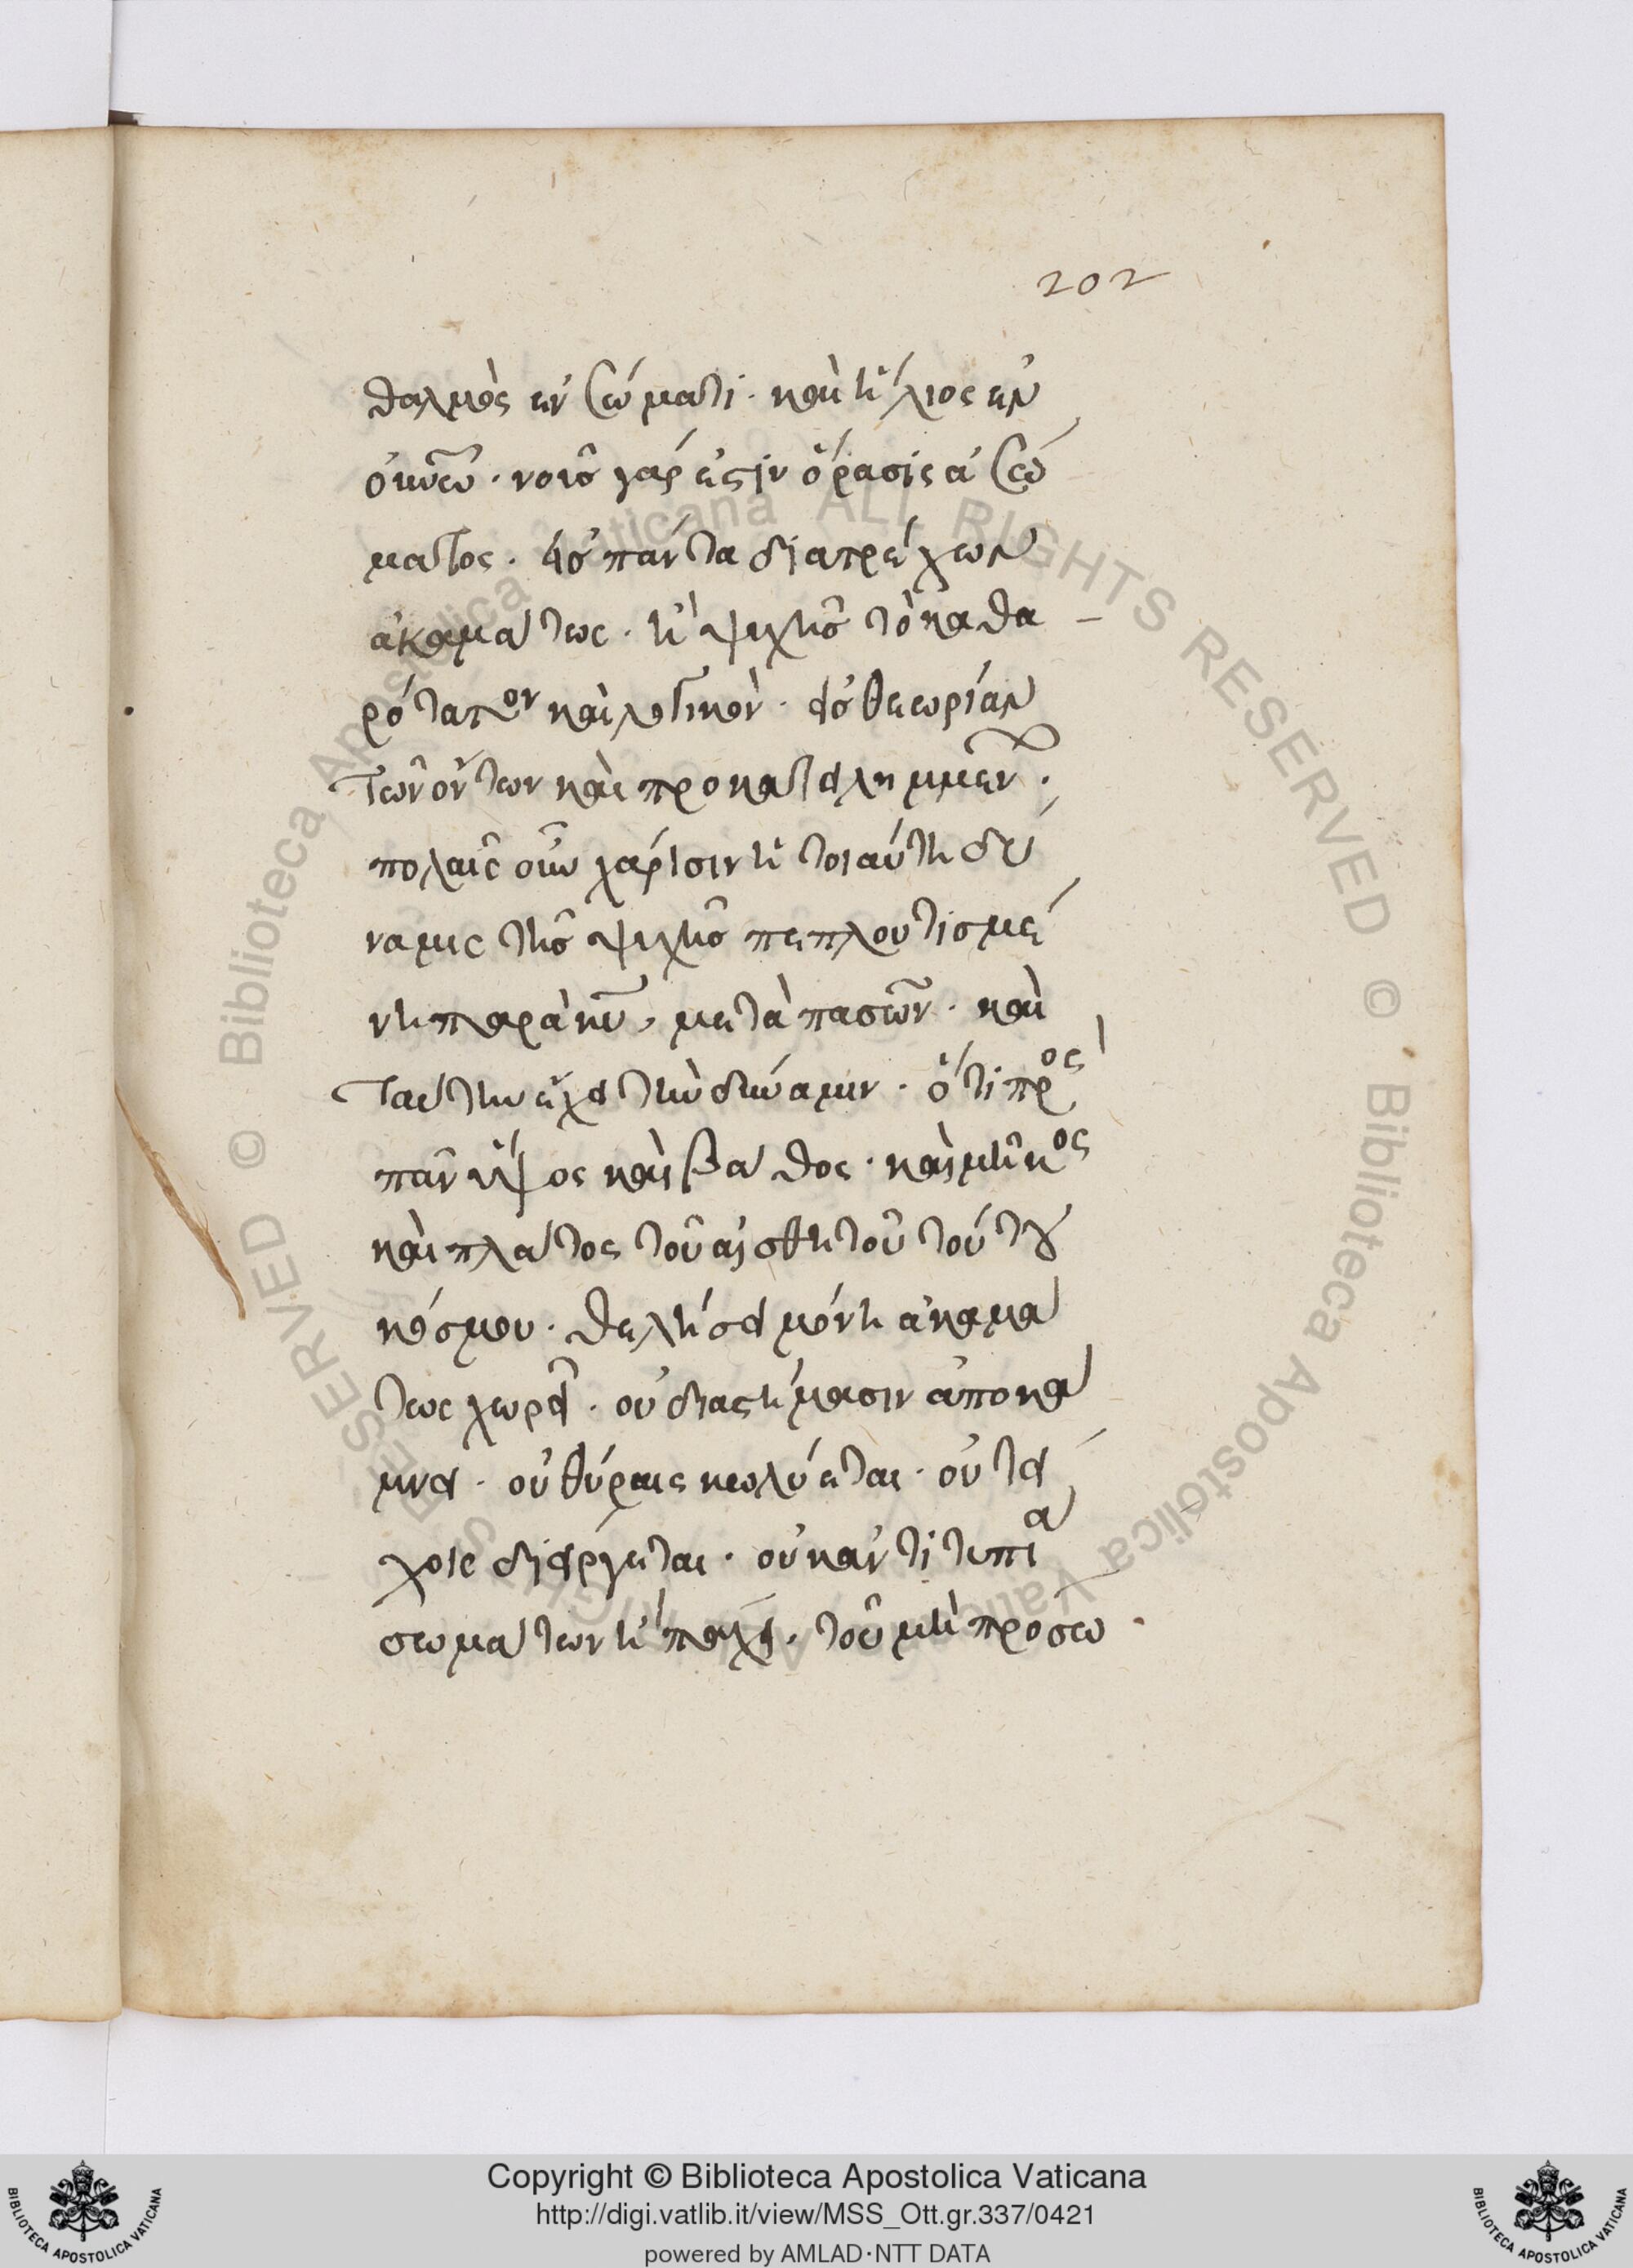 202
θαλμὸς ἐν σώματι· καὶ ἥλιος ἐν
οἴκῳ· νοῦς γάρ ἐστιν ὅρασις ἀσώ
ματος· εἰς πάντα διατρέχων
ἀκαμάτως· ἢ ψυχῆς τὸ καθα –
ρότατον καὶ λογικὸν· εἰς θεωρίαν
τῶν ὄντων καὶ προκατειλημμένων·
πολαῖς οὖν χάρισιν ἡ τοιαύτη δύ
ναμις τῆς ψυχῆς πεπλουτισμέ
νη παρὰ κυ, μετὰ πασῶν· καὶ
ταύτην ἔχει τὴν δύναμιν· ὅτι πρὸς
πᾶν ὕψος καὶ βάθος· καὶ μῆκος
καὶ πλάτος τοῦ αἰσθητοῦ τούτου
κόσμου· θελήσει μόνη ἀκαμά
τως χωρεῖ· οὐ διαστήμασιν ἀποκά
μνει· οὐ θύραις κωλύεται· οὐ τεί
χοις διείργεται· οὐκ ἀντιτυπία
σωμάτων ἢ πάχει· τοῦ μὴ πρόσω
Copyright © Biblioteca Apostolica Vaticana
http://digi.vatlib.it/view/MSS_Ott.gr.337/0421
powered by AMLAD·NTT DATA
BIBLIOTECA APOSTOLICA VATICANA
BIBLIOTECA APOSTOLICA VATICANA
© Biblioteca Apostolica Vaticana ALL RIGHTS RESERVED
© Biblioteca Apostolica Vaticana ALL RIGHTS RESERVED